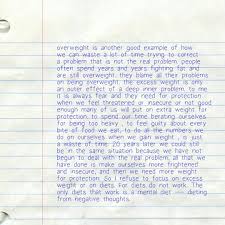 overweight is another good example of how
we can waste a lot of time trying to correct
a problem that is not the real problem. people
often spend years and years fighting fat and
are still overweight. they blame all their problems
on being overweight. the excess weight is only
an outer effect of a deep inner problem. to me
it is always fear and they need for protection.
when we feel threatened or insecure or not good
enough many of us will put on extra weight for
protection. to spend our time berating ourselves
for being too heavy , to feel guilty about every
bite of food we eat, to do all the numbers we
do on ourselves when we gain weight , is just
a waste of time. 20 years later we could still
be in the same situation because we have not
begun to deal with the real problem, all that we
have done is make ourselves more frightened
and insecure, and then we need more weight
for protection. So i refuse to focus on excess
weight or on diets. For diets do not work. The
only diet that work is a mental diet --- dieting
from negative thoughts.